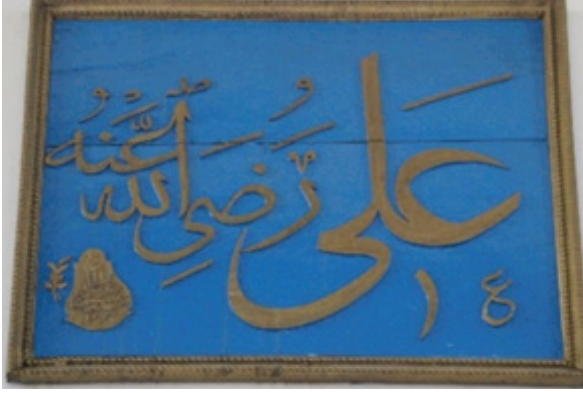 على رضي الله عنه